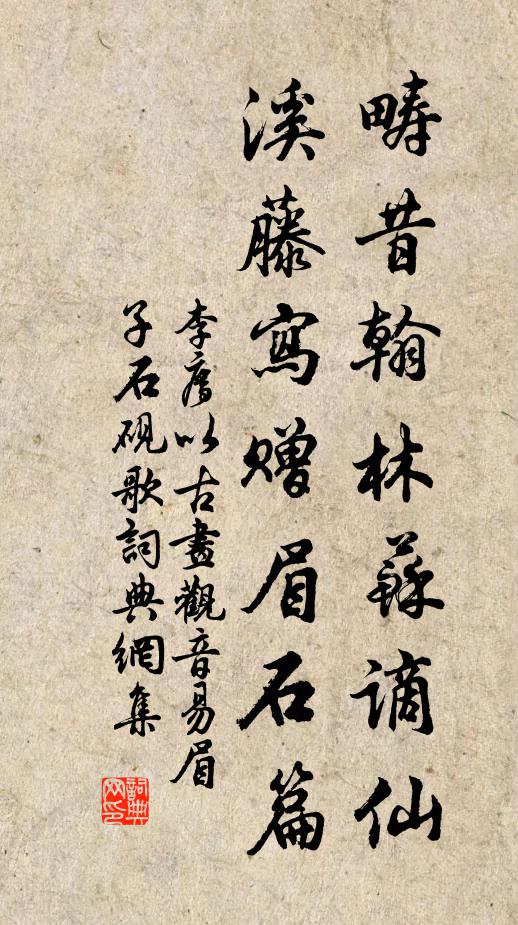 疇昔翰林蘇謫仙
溪藤寫贈眉石篇
李廌以古畫觀音易眉
子石硯歌詞典網集
詞典网印